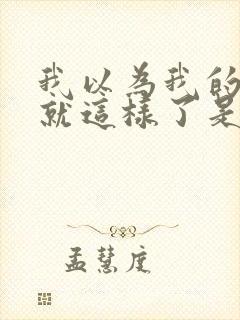 我以為我的
就這樣了是
孟慧庭